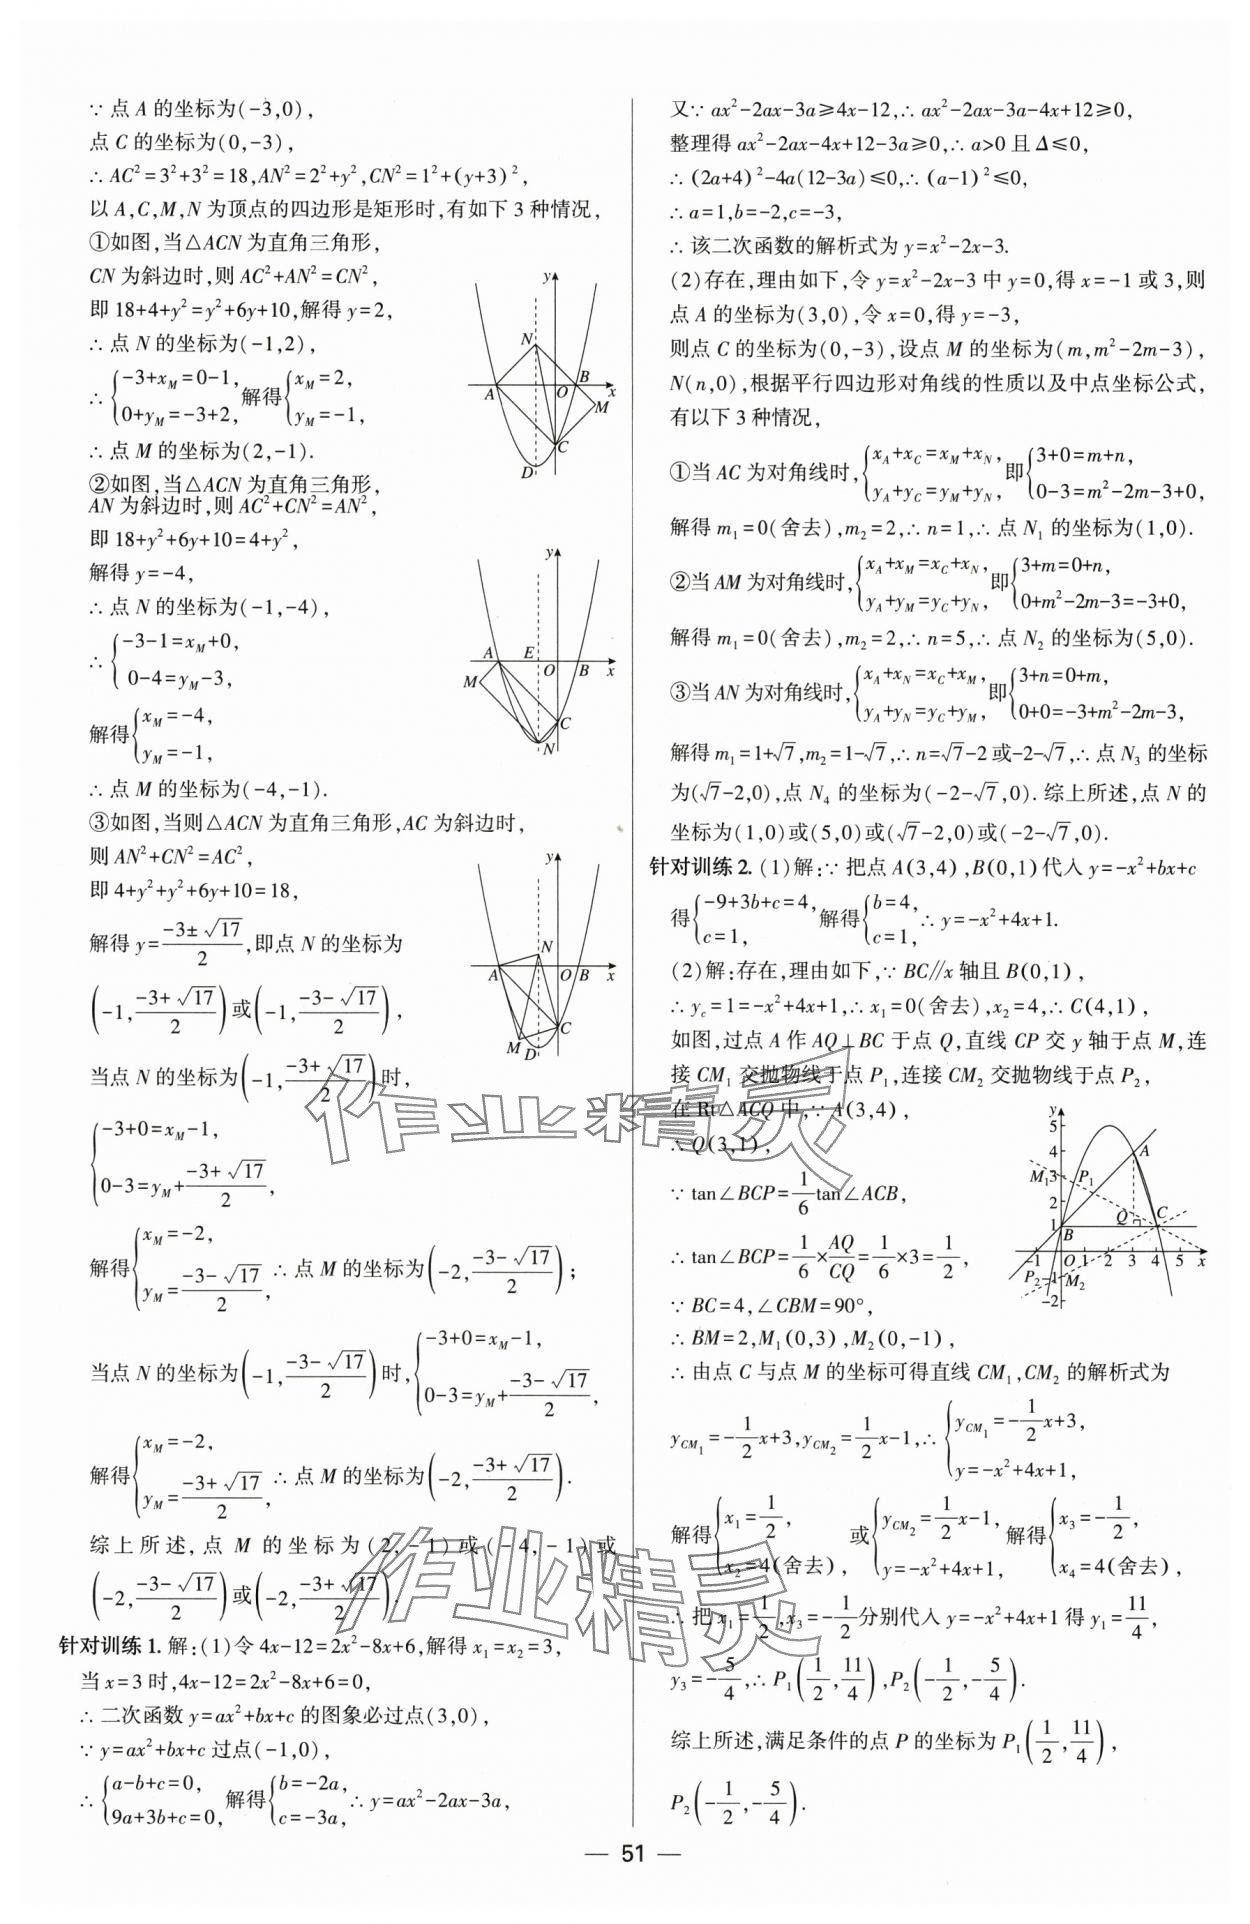 ∵ 点 A 的坐标为(-3,0),
点 C 的坐标为(0,-3),
∴ AC²=3²+3²=18,AN²=2²+y²,CN²=1²+(y+3)²,
以 A,C,M,N 为顶点的四边形是矩形时,有如下 3 种情况,
①如图,当△ACN 为直角三角形,
CN 为斜边时,则 AC²+AN²=CN²,
即 18+4+y²=y²+6y+10,解得 y=2,
∴ 点 N 的坐标为(-1,2),
∴ {-3+x_M=0-1, 0+y_M=-3+2, 解得{x_M=2, y_M=-1,
∴ 点 M 的坐标为(2,-1).
②如图,当△ACN 为直角三角形,
AN 为斜边时,则 AC²+CN²=AN²,
即 18+y²+6y+10=4+y²,
解得 y=-4,
∴ 点 N 的坐标为(-1,-4),
∴ {-3-1=x_M+0, 0-4=y_M-3,
解得{x_M=-4, y_M=-1,
∴ 点 M 的坐标为(-4,-1).
③如图,当则△ACN 为直角三角形,AC 为斜边时,
则 AN²+CN²=AC²,
即 4+y²+y²+6y+10=18,
解得 y=(-3±√17)/2,即点 N 的坐标为
(-1,(-3+√17)/2)或(-1,(-3-√17)/2),
当点 N 的坐标为(-1,(-3+√17)/2)时,
{-3+0=x_M-1, 0-3=y_M+(-3+√17)/2,
解得{x_M=-2, y_M=(-3-√17)/2, ∴ 点 M 的坐标为(-2,(-3-√17)/2);
当点 N 的坐标为(-1,(-3-√17)/2)时,{-3+0=x_M-1, 0-3=y_M+(-3-√17)/2,
解得{x_M=-2, y_M=(-3+√17)/2, ∴ 点 M 的坐标为(-2,(-3+√17)/2).
综上所述,点 M 的坐标为(2,-1)或(-4,-1)或
(-2,(-3-√17)/2)或(-2,(-3+√17)/2).
针对训练 1. 解:(1)令 4x-12=2x²-8x+6,解得 x₁=x₂=3,
当 x=3 时,4x-12=2x²-8x+6=0,
∴ 二次函数 y=ax²+bx+c 的图象必过点(3,0),
∵ y=ax²+bx+c 过点(-1,0),
∴ {a-b+c=0, 9a+3b+c=0, 解得{b=-2a, c=-3a, ∴ y=ax²-2ax-3a,
y
N
A
O
B
x
M
C
D
y
A
E
O
B
x
M
C
N
y
N
A
O
B
x
C
M
D
又∵ ax²-2ax-3a≥4x-12,∴ ax²-2ax-3a-4x+12≥0,
整理得 ax²-2ax-4x+12-3a≥0,∴ a>0 且 Δ≤0,
∴ (2a+4)²-4a(12-3a)≤0,∴ (a-1)²≤0,
∴ a=1,b=-2,c=-3,
∴ 该二次函数的解析式为 y=x²-2x-3.
(2)存在,理由如下,令 y=x²-2x-3 中 y=0,得 x=-1 或 3,则
点 A 的坐标为(3,0),令 x=0,得 y=-3,
则点 C 的坐标为(0,-3),设点 M 的坐标为(m,m²-2m-3),
N(n,0),根据平行四边形对角线的性质以及中点坐标公式,
有以下 3 种情况,
①当 AC 为对角线时,{x_A+x_C=x_M+x_N, y_A+y_C=y_M+y_N, 即{3+0=m+n, 0-3=m²-2m-3+0,
解得 m₁=0(舍去),m₂=2,∴ n=1,∴ 点 N₁ 的坐标为(1,0).
②当 AM 为对角线时,{x_A+x_M=x_C+x_N, y_A+y_M=y_C+y_N, 即{3+m=0+n, 0+m²-2m-3=-3+0,
解得 m₁=0(舍去),m₂=2,∴ n=5,∴ 点 N₂ 的坐标为(5,0).
③当 AN 为对角线时,{x_A+x_N=x_C+x_M, y_A+y_N=y_C+y_M, 即{3+n=0+m, 0+0=-3+m²-2m-3,
解得 m₁=1+√7,m₂=1-√7,∴ n=√7-2 或-2-√7,∴ 点 N₃ 的坐标
为(√7-2,0),点 N₄ 的坐标为(-2-√7,0). 综上所述,点 N 的
坐标为(1,0)或(5,0)或(√7-2,0)或(-2-√7,0).
针对训练 2. (1)解:∵ 把点 A(3,4),B(0,1)代入 y=-x²+bx+c
得{-9+3b+c=4, c=1, 解得{b=4, c=1, ∴ y=-x²+4x+1.
(2)解:存在,理由如下,∵ BC∥x 轴且 B(0,1),
∴ y_c=1=-x²+4x+1,∴ x₁=0(舍去),x₂=4,∴ C(4,1),
如图,过点 A 作 AQ⊥BC 于点 Q,直线 CP 交 y 轴于点 M,连
接 CM₁ 交抛物线于点 P₁,连接 CM₂ 交抛物线于点 P₂,
在 Rt△ACQ 中,∵ A(3,4),
∴ Q(3,1),
∵ tan∠BCP=1/6 tan∠ACB,
∴ tan∠BCP=1/6×AQ/CQ=1/6×3=1/2,
∵ BC=4,∠CBM=90°,
∴ BM=2,M₁(0,3),M₂(0,-1),
∴ 由点 C 与点 M 的坐标可得直线 CM₁,CM₂ 的解析式为
y_CM₁=-1/2x+3,y_CM₂=1/2x-1,∴ {y_CM₁=-1/2x+3, y=-x²+4x+1,
解得{x₁=1/2, x₂=4(舍去) 或{y_CM₂=1/2x-1, y=-x²+4x+1, 解得{x₃=-1/2, x₄=4(舍去),
∴ 把 x₁=1/2,x₃=-1/2分别代入 y=-x²+4x+1 得 y₁=11/4,
y₃=-5/4,∴ P₁(1/2,11/4),P₂(-1/2,-5/4).
综上所述,满足条件的点 P 的坐标为 P₁(1/2,11/4),
P₂(-1/2,-5/4).
y
5
4
A
M₁
3
P₁
2
Q
C
1
B
-1
O
1
2
3
4
5
x
P₂
-1
M₂
-2
作业精灵
作业精灵
— 51 —